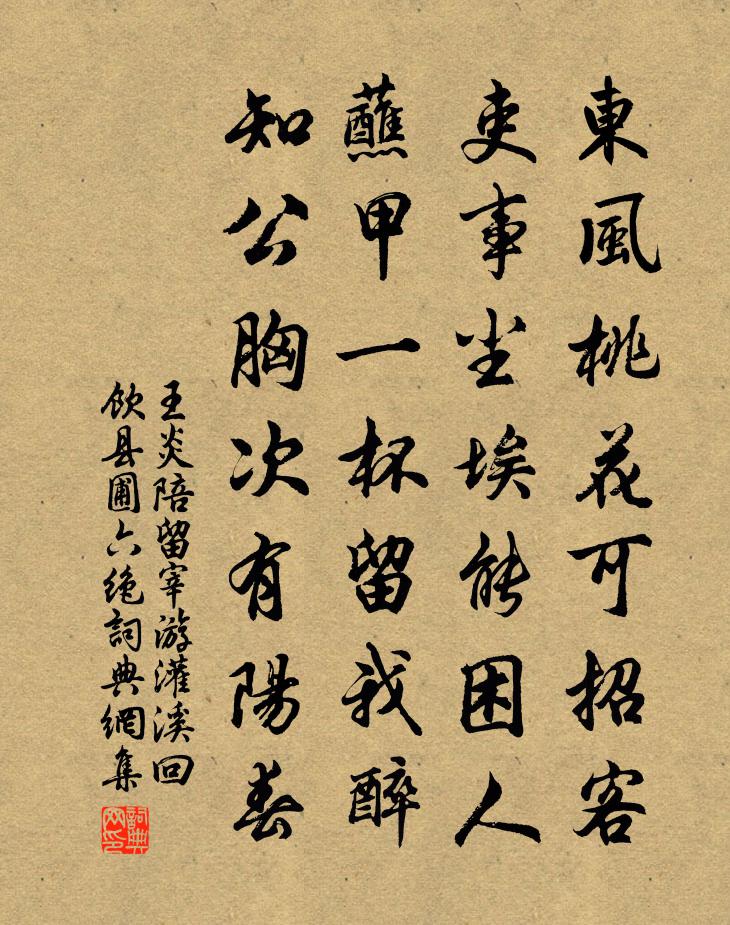 東風桃花可招客
吏事尘埃能困人
蘸甲一杯留我醉
知公胸次有陽春
王炎陪留宰游灌溪回
飲县圃六絶詞典網集
詞典
网印